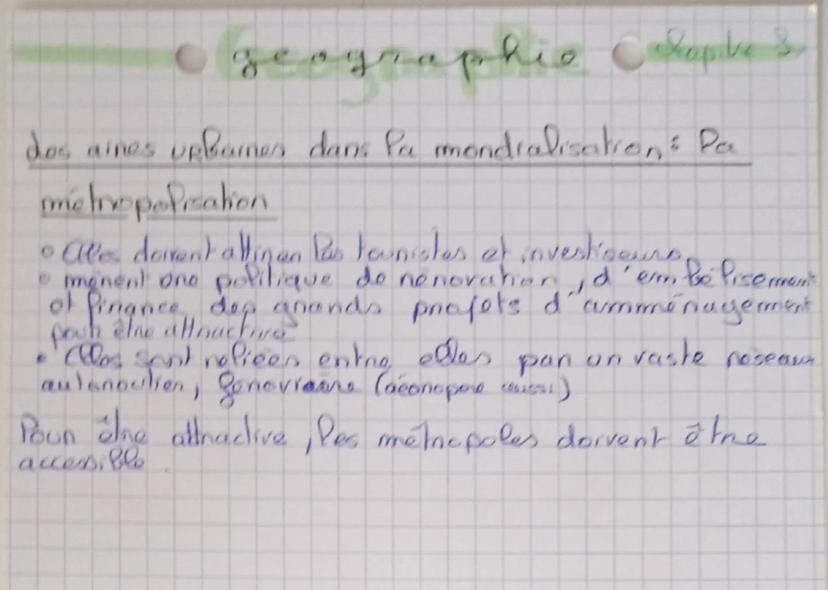 geographie Chapitre 3
des aires urbaines dans la mondialisation : la
métropolisation
• elles doivent attirer les touristes et investisseurs
• mènent une politique de rénovation, d'embelisement
et finance des grands projets d'amménagement
pour être attractive
• elles sont reliées entre elles par un vaste reseau
autoroutier, (aéroport aussi)
Pour être attractive, les métropoles doivent être
accessible.